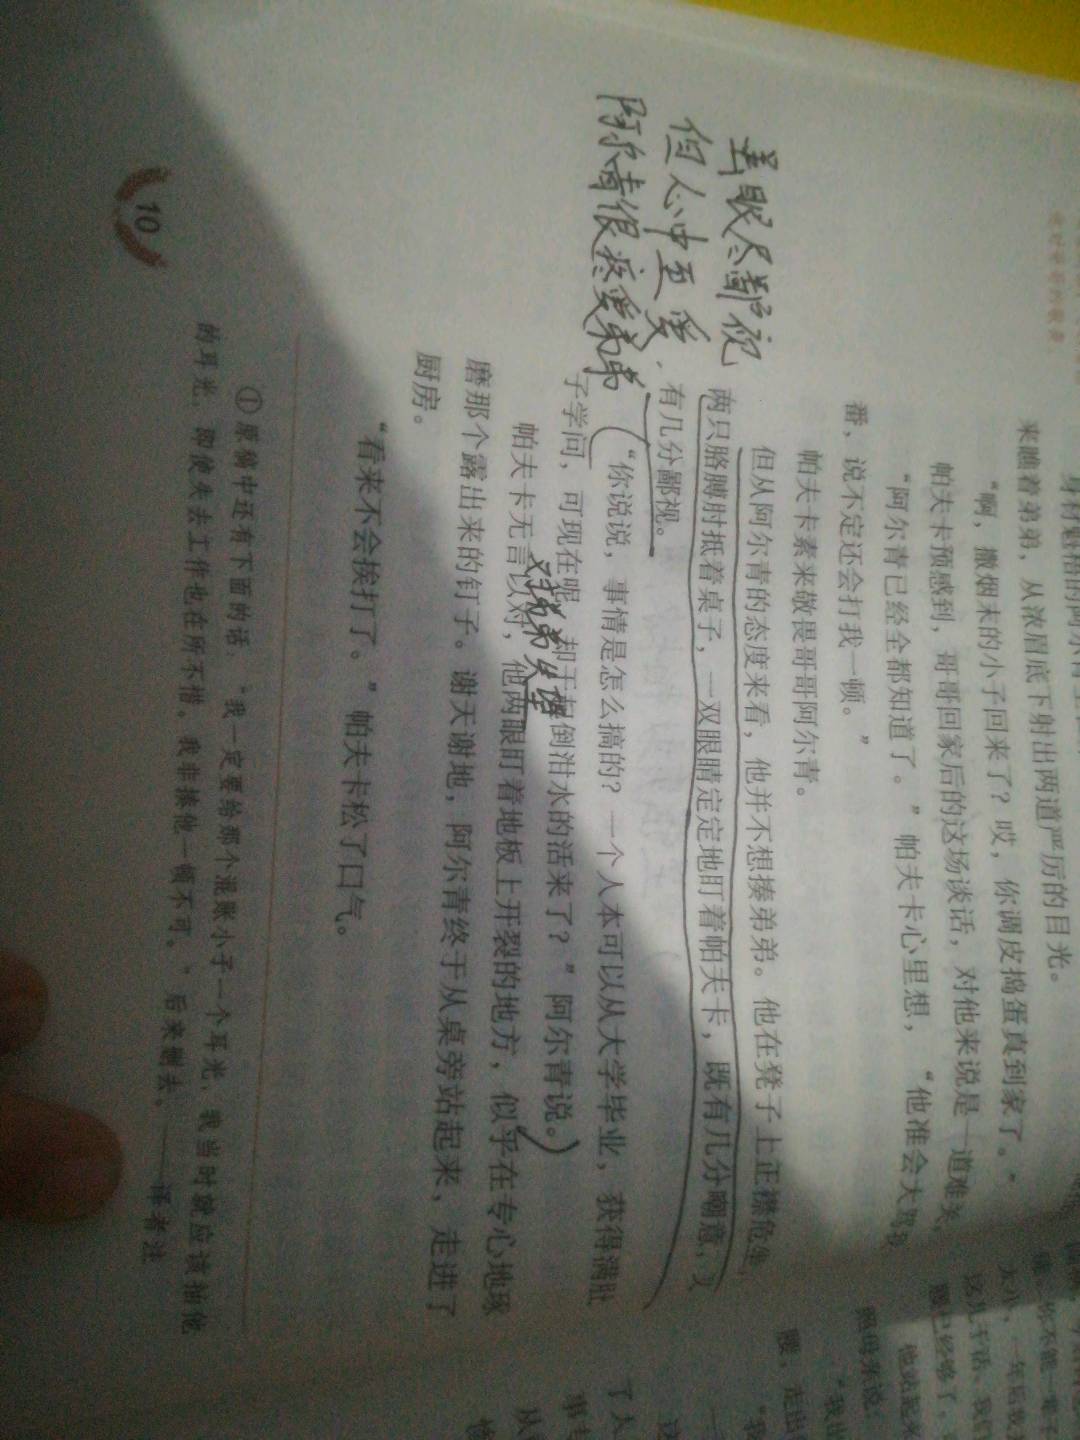 来瞧着弟弟，从浓眉底下射出两道严厉的目光。
“啊，撒烟末的小子回来了？哎，你调皮捣蛋真到家了。”
帕夫卡预感到，哥哥回家后的这场谈话，对他来说是一道难关。
“阿尔青已经全都知道了。”帕夫卡心里想，“他准会大骂我
一番，说不定还会打我一顿。”
帕夫卡素来敬畏哥哥阿尔青。
但从阿尔青的态度来看，他并不想揍弟弟。他在凳子上正襟危坐，
两只胳膊肘抵着桌子，一双眼睛定定地盯着帕夫卡，既有几分嘲意，又
有几分鄙视。
“你说说，事情是怎么搞的？一个人本可以从大学毕业，获得满肚
子学问，可现在呢，却干起倒泔水的活来了？”阿尔青说。
帕夫卡无言以对，他两眼盯着地板上开裂的地方，似乎在专心地琢
磨那个露出来的钉子。谢天谢地，阿尔青终于从桌旁站起来，走进了
厨房。
“看来不会挨打了。”帕夫卡松了口气。
①原稿中还有下面的话：“我一定要给那个混账小子一个耳光，我当时就应该抽他
的耳光，即使失去工作也在所不惜。我非揍他一顿不可。”后来删去。——译者注
10
眼尽鄙视
但心中至爱
阿尔青很疼爱弟弟
对弟弟失望